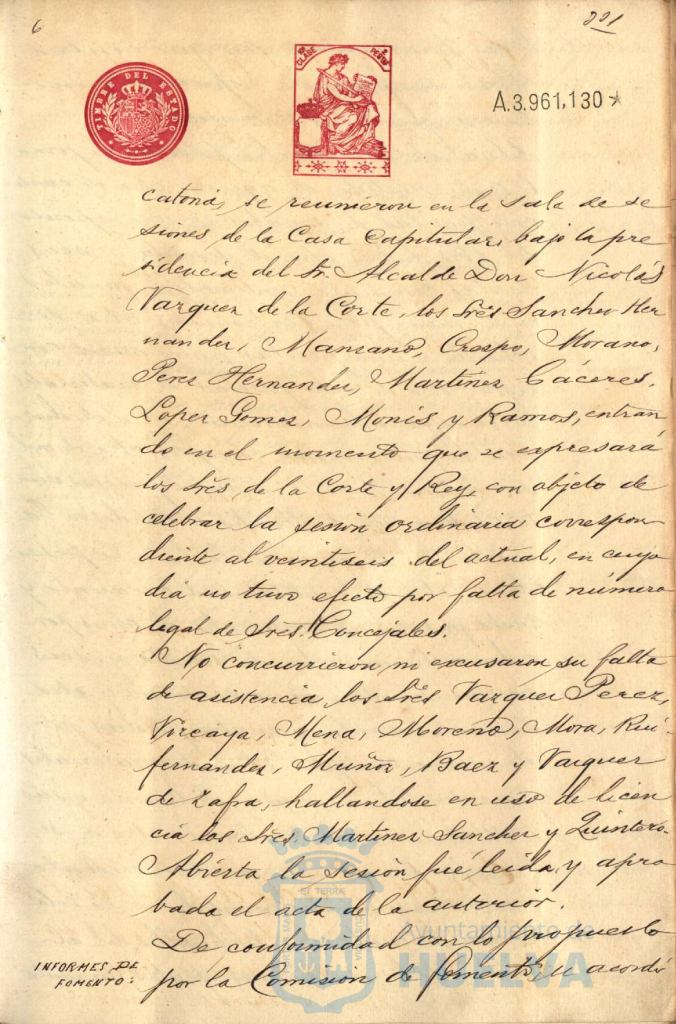 6
221
TIMBRE DEL ESTADO
CLASE
PESETAS
A.3.961,130
catona, se reunieron en la sala de se
siones de la Casa Capitular, bajo la pre
sidencia del Sr. Alcalde Don Nicolás
Vazquez de la Corte, los Srés Sanchez Her
nandez, Manzano, Crespo, Morano,
Perez Hernandez, Martinez Cáceres,
Lopez Gomez, Monis y Ramos, entran
do en el momento que se expresará
los Srés de la Corte y Rey, con objeto de
celebrar la sesion ordinaria correspon
diente al veintiseis del actual, en cuyo
dia no tuvo efecto por falta de número
legal de Srés. Concejales.
No concurrieron ni excusaron su falta
de asistencia los Srés Vazquez Perez,
Vizcaya, Mena, Moreno, Mora, Rui-
fernandez, Muñoz, Baez y Vazquez
de Zafra, hallandose en uso de licen
cia los Srés Martinez Sanchez y Quintero.
Abierta la sesion fué leida y apro
bada el acta de la anterior.
INFORMES DE
FOMENTO:
De conformidad con lo propuesto
por la Comision de fomento, se acordó
Ayuntamiento de
HUELVA